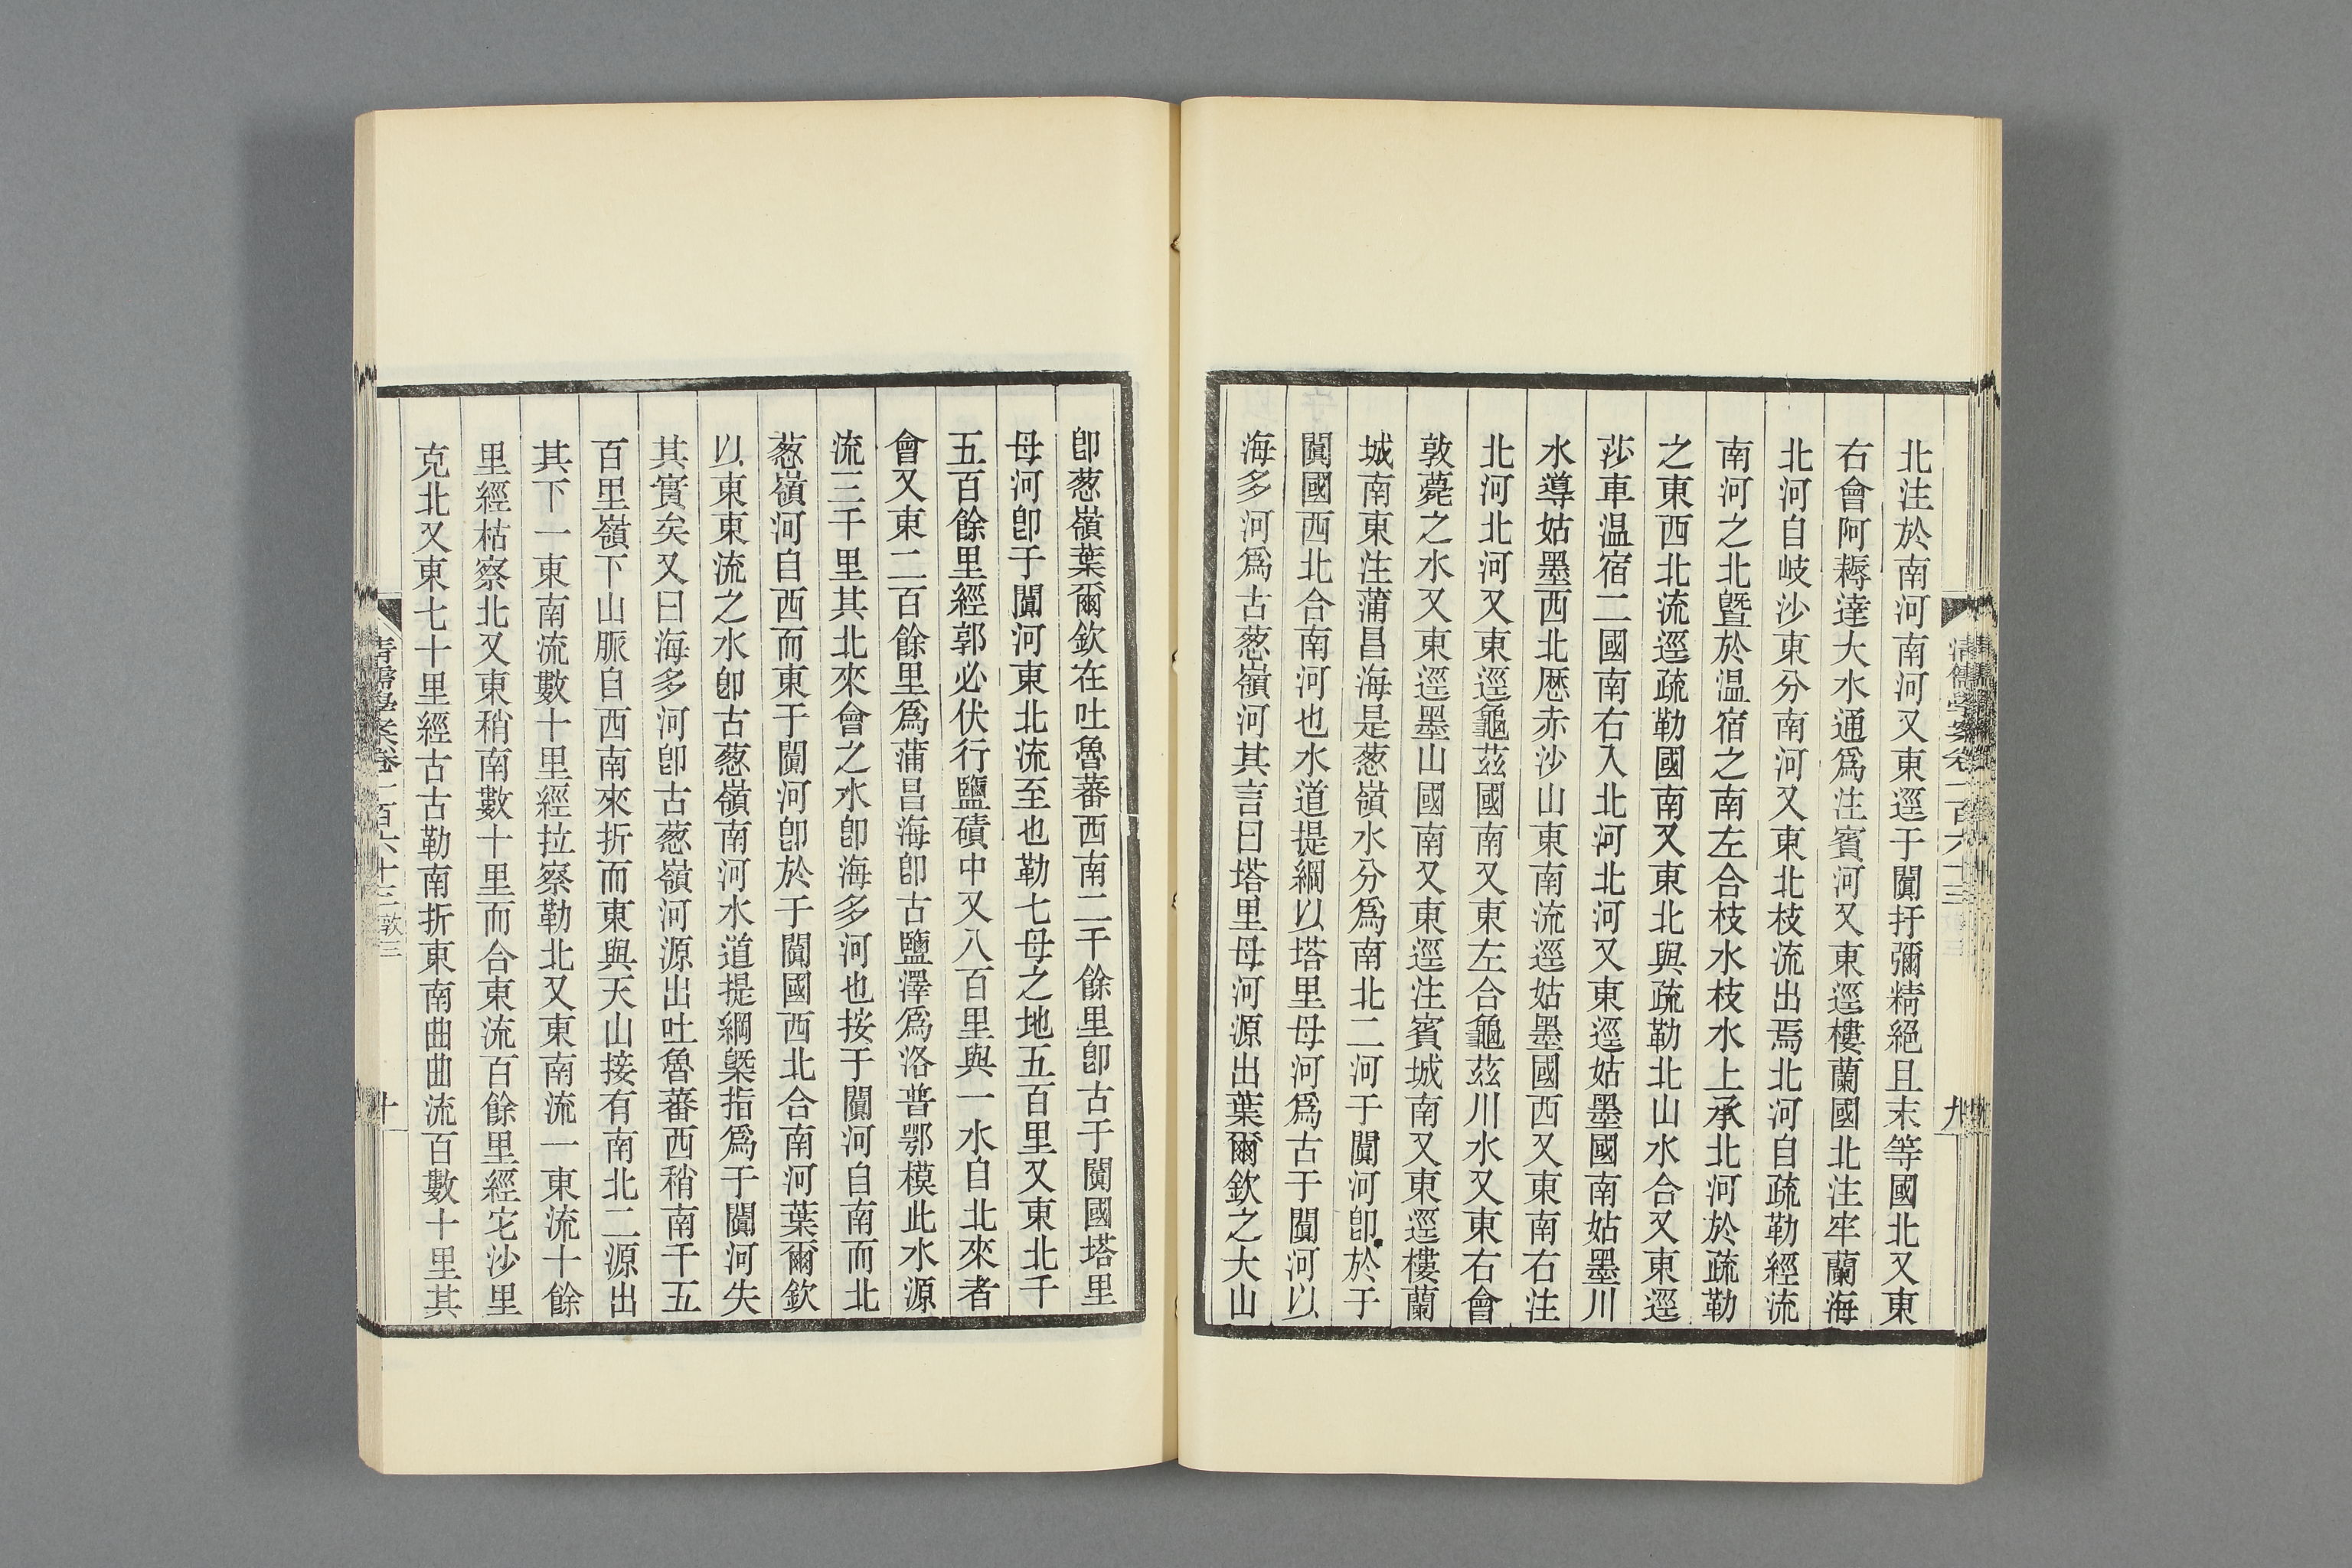 北注於南河南河又東逕于闐扜彌精絕且末等國北又東
右會阿耨達大水通爲注賓河又東逕樓蘭國北注牢蘭海
北河自岐沙東分南河又東北枝流出焉北河自疏勒經流
南河之北曁於温宿之南左合枝水枝水上承北河於疏勒
之東西北流逕疏勒國南又東北與疏勒北山水合又東逕
莎車温宿二國南右入北河北河又東逕姑墨國南姑墨川
水導姑墨西北歷赤沙山東南流逕姑墨國西又東南右注
北河北河又東逕龜茲國南又東左合龜茲川水又東右會
敦薨之水又東逕墨山國南又東逕注賓城南又東逕樓蘭
城南東注蒲昌海是葱嶺水分爲南北二河于闐河卽於于
闐國西北合南河也水道提綱以塔里母河爲古于闐河以
海多河爲古葱嶺河其言曰塔里母河源出葉爾欽之大山
清儒學案卷一百六十三
九
卽葱嶺葉爾欽在吐魯蕃西南二千餘里卽古于闐國塔里
母河卽于闐河東北流至也勒七母之地五百里又東北千
五百餘里經郭必伏行鹽磧中又八百里與一水自北來者
會又東二百餘里爲蒲昌海卽古鹽澤爲洛普鄂模此水源
流三千里其北來會之水卽海多河也按于闐河自南而北
葱嶺河自西而東于闐河卽於于闐國西北合南河葉爾欽
以東東流之水卽古葱嶺南河水道提綱槩指爲于闐河失
其實矣又曰海多河卽古葱嶺河源出吐魯蕃西稍南千五
百里嶺下山脈自西南來折而東與天山接有南北二源出
其下一東南流數十里經拉察勒北又東南流一東流十餘
里經枯察北又東稍南數十里而合東流百餘里經宅沙里
克北又東七十里經古古勒南折東南曲曲流百數十里其
清儒學案卷一百六十三 敦三
十